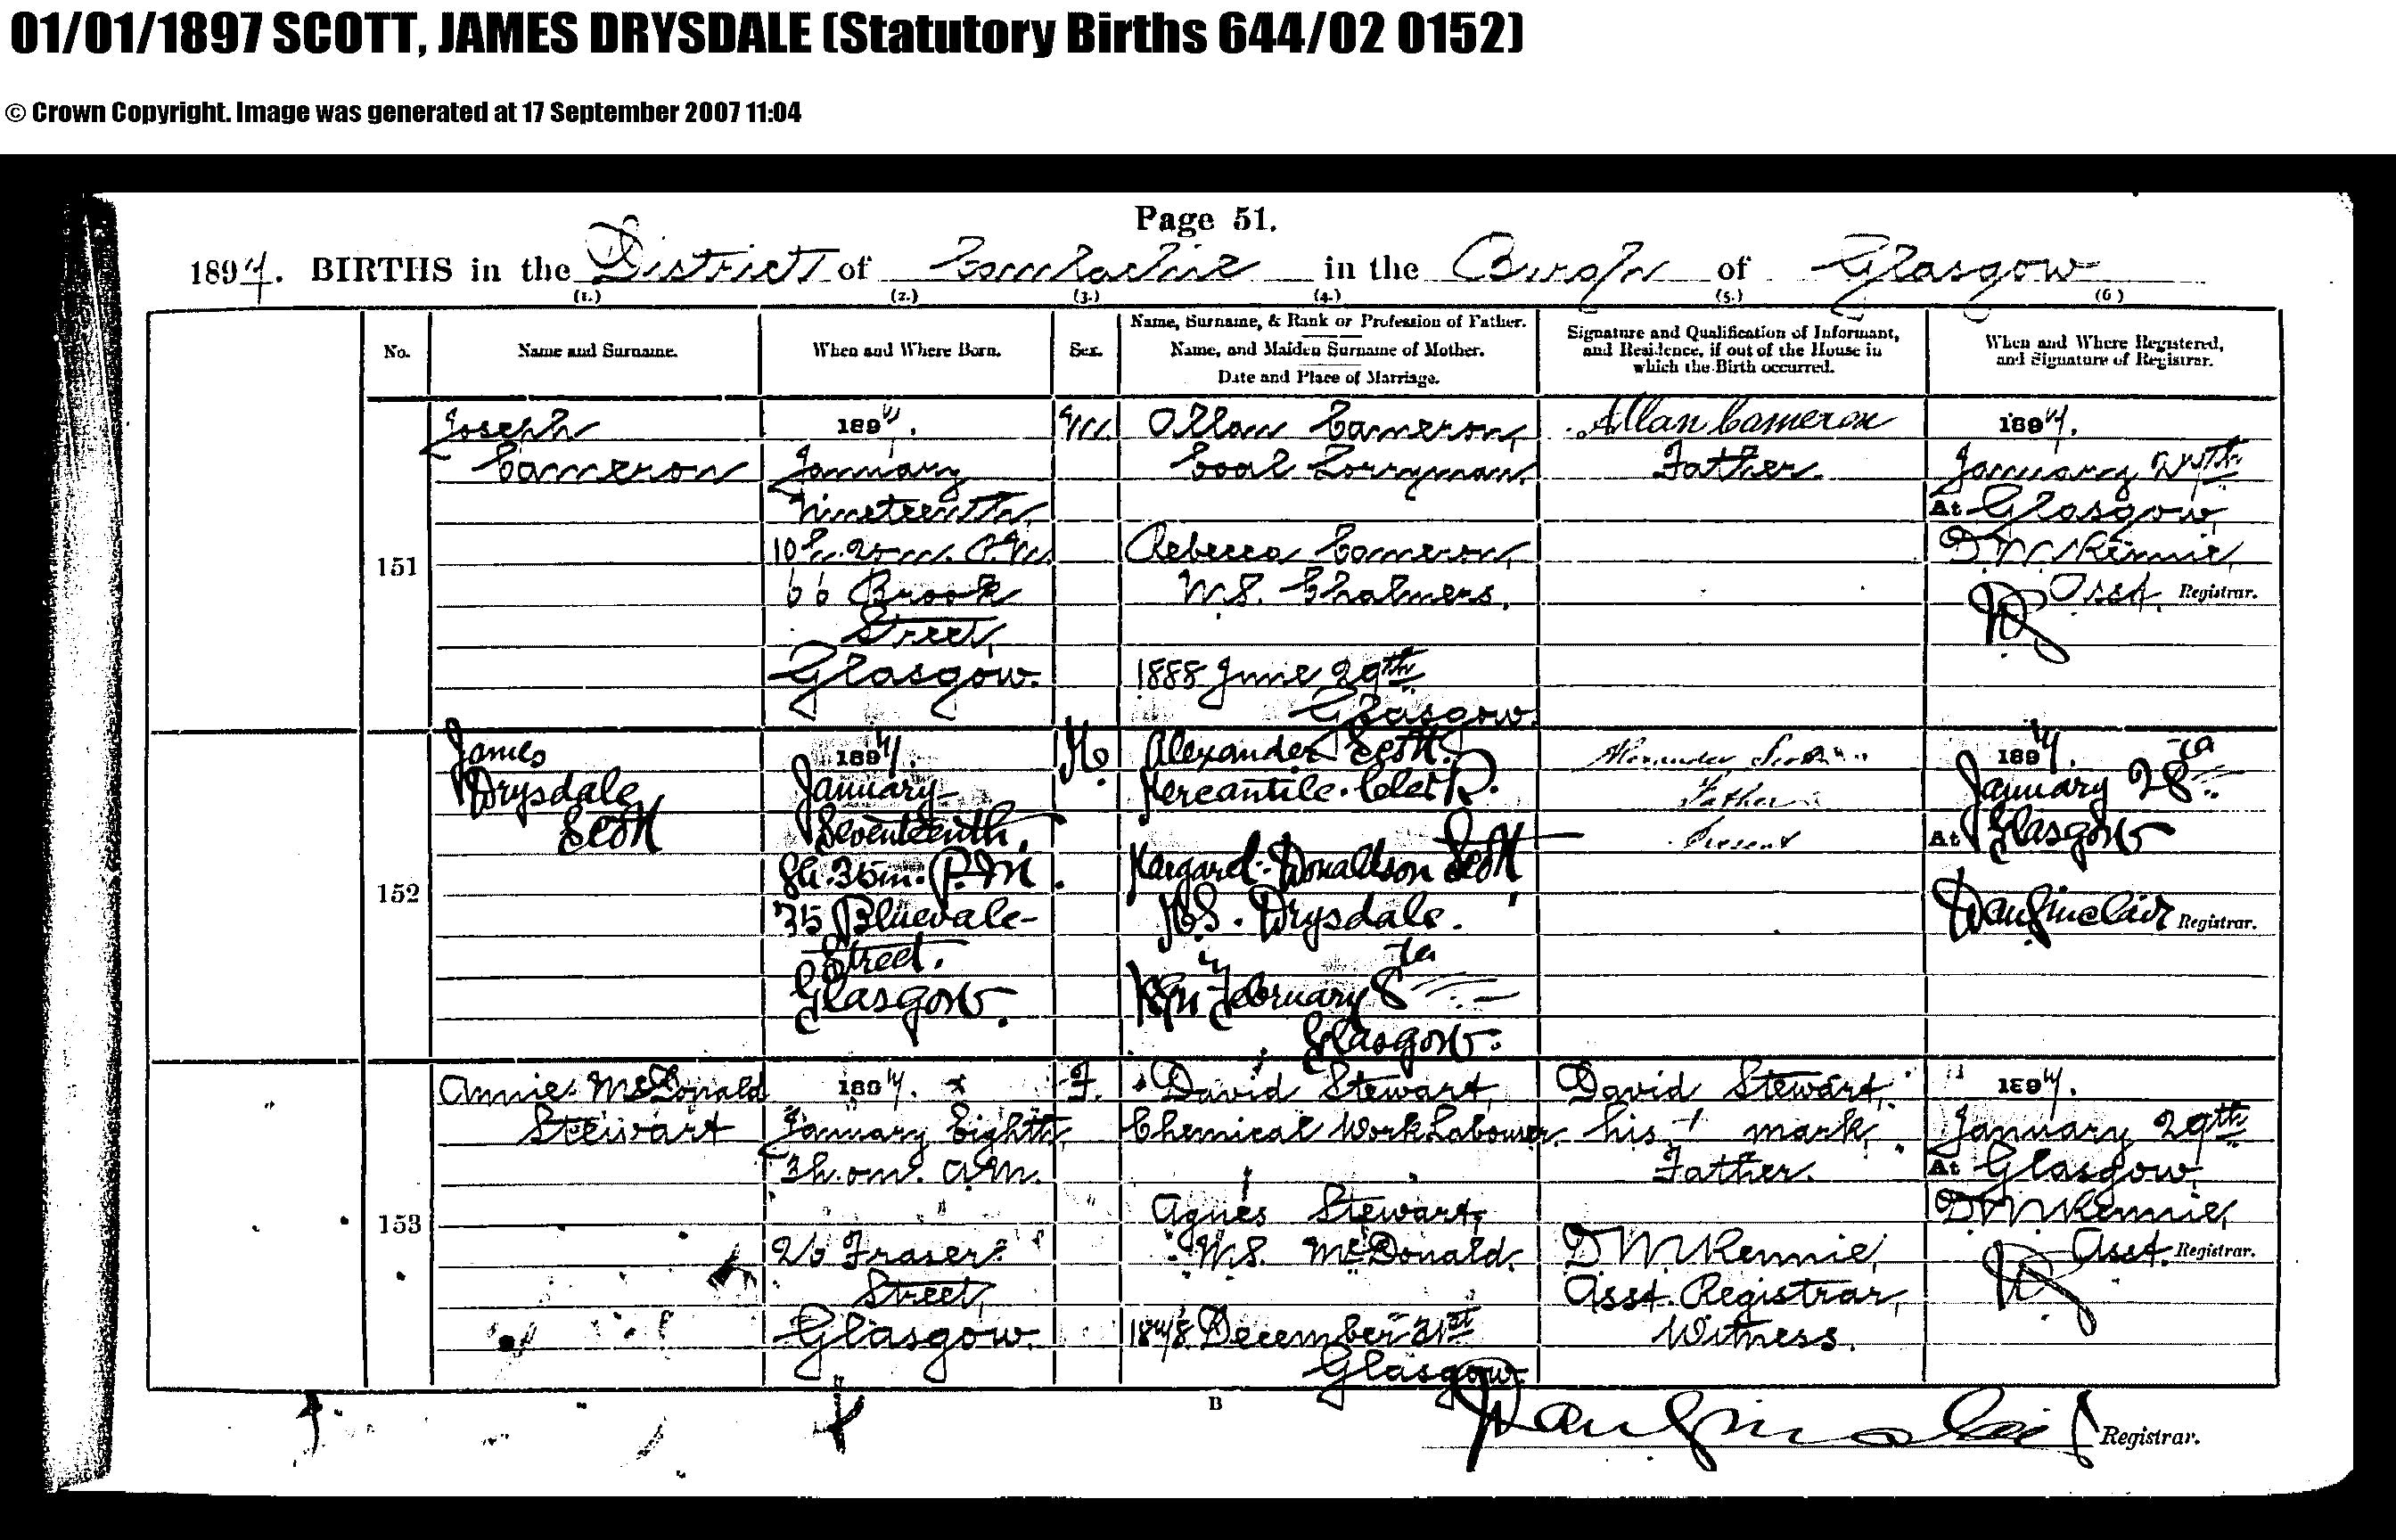 01/01/1897 SCOTT, JAMES DRYSDALE (Statutory Births 644/02 0152)
© Crown Copyright. Image was generated at 17 September 2007 11:04
Page 51.
1897. BIRTHS in the District of Camlachie in the Burgh of Glasgow
(1.) (2.) (3.) (4.) (5.) (6)
No.
Name and Surname.
When and Where Born.
Sex.
Name, Surname, & Rank or Profession of Father.
Name, and Maiden Surname of Mother.
Date and Place of Marriage.
Signature and Qualification of Informant,
and Residence, if out of the House in
which the Birth occurred.
When and Where Registered,
and Signature of Registrar.
151
Joseph
Cameron
1897.
January
Nineteenth,
10h. 20m. P.M.
66 Brook
Street,
Glasgow.
M.
Allan Cameron,
Coal Lorryman.
Rebecca Cameron,
M.S. Chalmers.
1888 June 29th
Glasgow.
Allan Cameron
Father.
1897.
January 27th
At Glasgow,
D. McKennie,
Asst. Registrar.
152
James
Drysdale
Scott
1897.
January
Seventeenth,
8h. 35m. P.M.
35 Bluevale
Street.
Glasgow.
M.
Alexander Scott.
Mercantile Clerk.
Margaret Donaldson Scott
M.S. Drysdale.
February 8th
Glasgow.
Alexander Scott
Father
Present
1897.
January 28th
At Glasgow
Sinclair Registrar.
153
Annie McDonald
Stewart
1897.
January Eighth,
3h. 0m. A.M.
26 Fraser
Street,
Glasgow.
F.
David Stewart,
Chemical Work Labourer.
Agnes Stewart,
M.S. McDonald.
1878 December 31st
Glasgow.
David Stewart,
his + mark,
Father.
D McKennie,
Asst. Registrar,
Witness.
1897.
January 29th
At Glasgow,
D McKennie,
Asst. Registrar.
B
Sinclair Registrar.